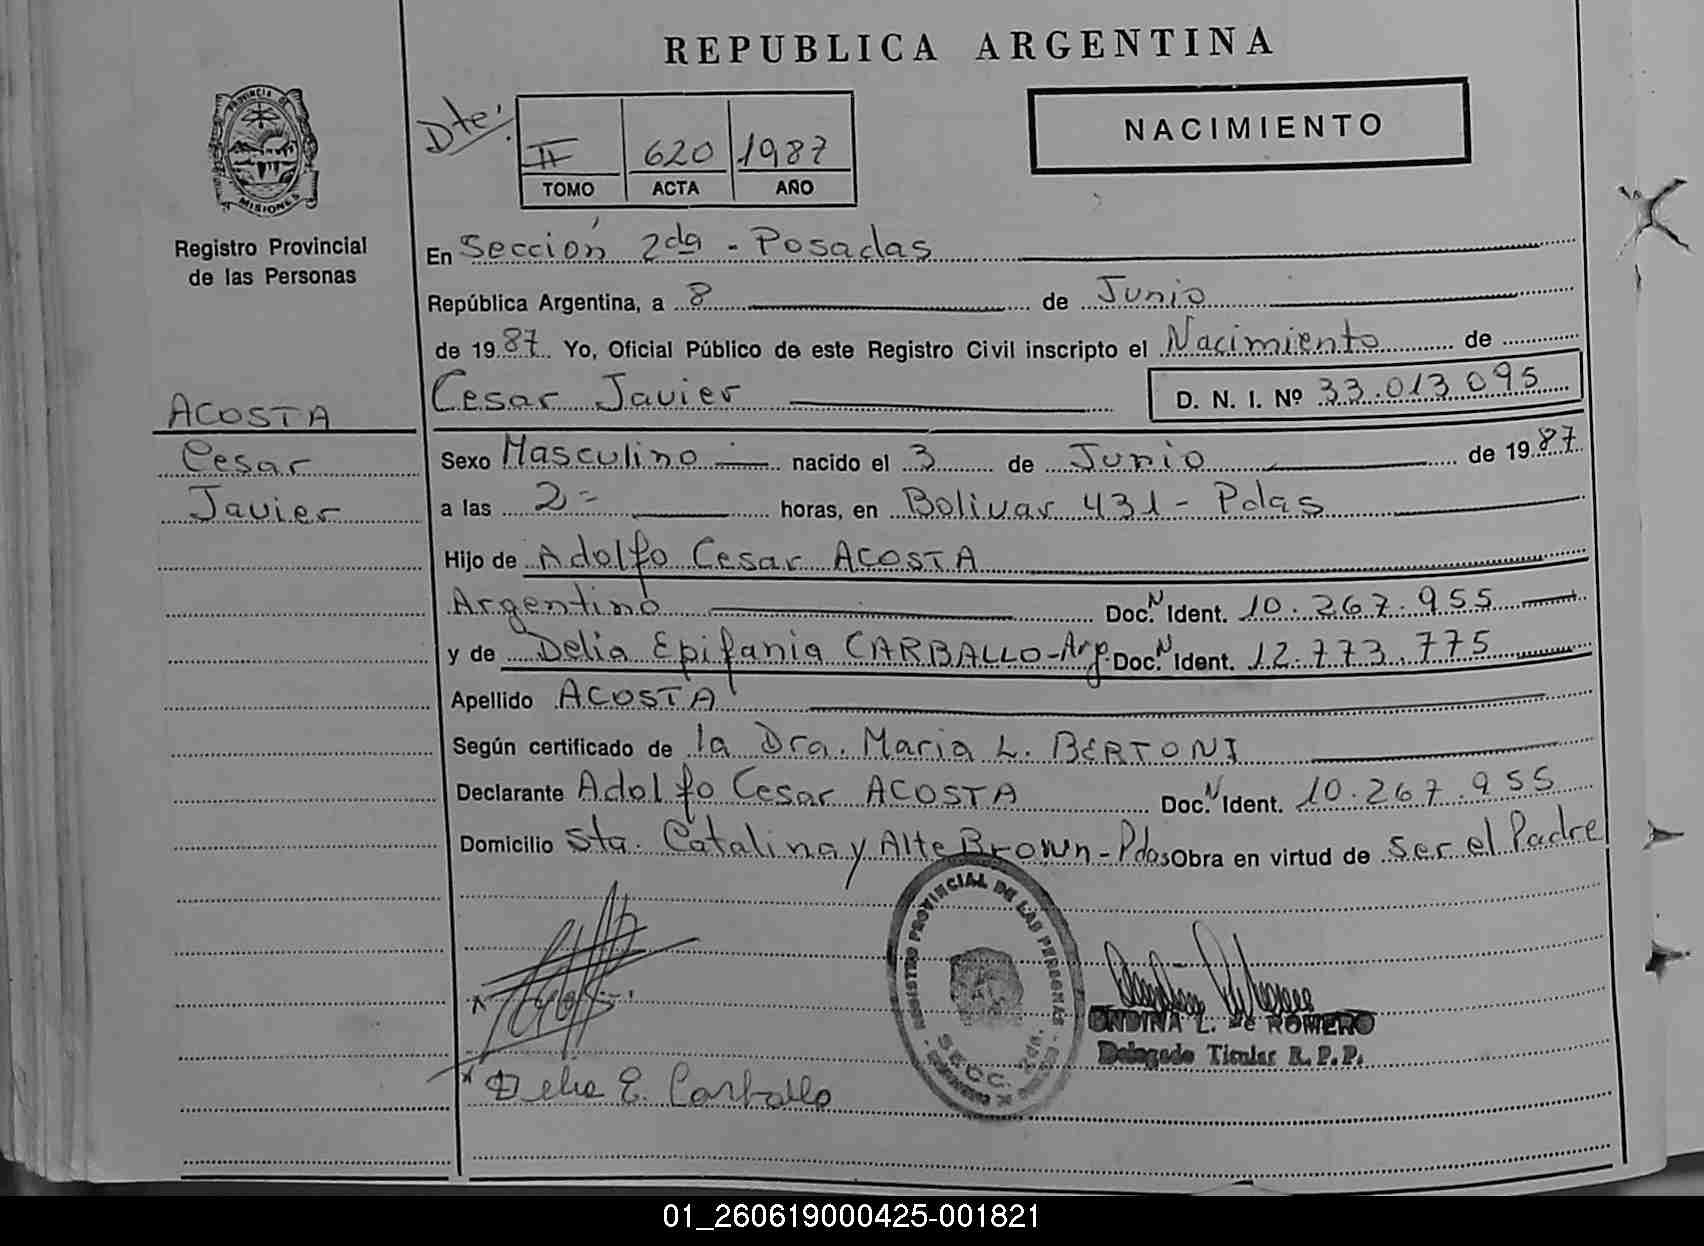 REPUBLICA ARGENTINA
PROVINCIA DE
MISIONES
Registro Provincial
de las Personas
Dte.
II 620 1987
TOMO ACTA AÑO
NACIMIENTO
En Sección 2da - Posadas
República Argentina, a 8 de Junio
de 1987 Yo, Oficial Público de este Registro Civil inscripto el Nacimiento de
Cesar Javier D. N. I. Nº 33.013.095
ACOSTA
Cesar
Javier
Sexo Masculino nacido el 3 de Junio de 1987
a las 2- horas, en Bolivar 431 - Pdas
Hijo de Adolfo Cesar ACOSTA
Argentino Doc. N Ident. 10.267.955
y de Delia Epifania CARBALLO-Arg. Doc. N Ident. 12.773.775
Apellido ACOSTA
Según certificado de la Dra. Maria L. BERTONI
Declarante Adolfo Cesar ACOSTA Doc. N Ident. 10.267.955
Domicilio Sta. Catalina y Alte Brown - Pdas Obra en virtud de ser el Padre
REGISTRO PROVINCIAL DE LAS PERSONAS
SECC. 2da.
ONDINA L. de ROMERO
Delegado Titular R.P.P.
Delia E. Carballo
01_260619000425-001821